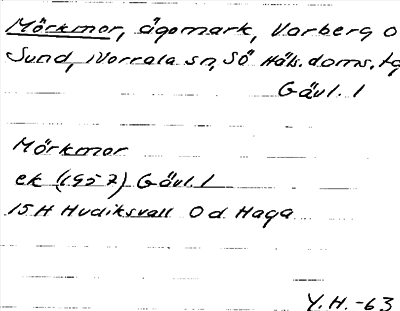 Mörkmor, ägomark, Varberg o
Sund, Norrala sn, Sö Häls. doms. tg
Gävl. l
Mörkmor
ek (1957) Gävl. l
15H Hudiksvall 0d Haga
Y.H. -63